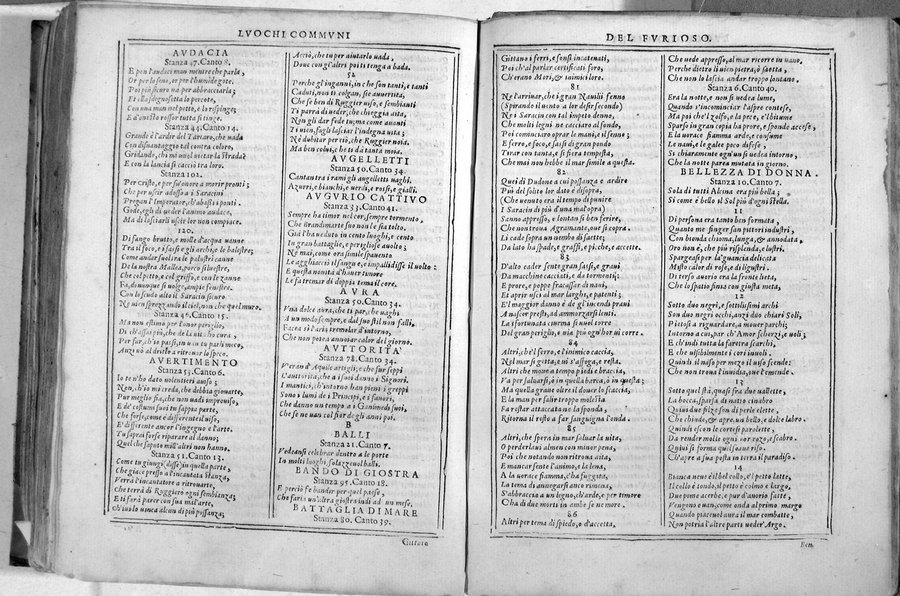 LVOCHI COMMVNI
AVDACIA
Stanza 47. Canto 8.
E pon l'audaci man mentre che parla,
Or per lo seno, or per l'humide gote.
Poi più sicuro va per abbracciarla;
Et ella sdegnosetta lo percote,
Con una man nel petto, e lo respinge;
E d'onesto rossor tutta si tinge.
Stanza 44. Canto 14.
Grande è l'ardir del Tartaro, che uada
Con disuantaggio tal contra coloro,
Gridando, chi mi uuol uietar la strada?
E con la lancia si cacciò tra loro.
Stanza 102.
Per Christo, e per su'onore a morir pronti;
Che per uscir adosso a i Saracini
Pregan l'Imperator, ch'abassi i ponti.
Gode, egli di ueder l'animo audace,
Ma di lasciarli uscir lor non compiace.
120.
Di fango brutto, e molle d'acqua uanne
Tra il foco, e i sassi e gli archi, e le balestre;
Come andar suol tra le palustri canne
De la nostra Mallea, porco siluestre,
Che col petto, e col griffo, e con le zanne
Fa, dounque si uolge, ampie fenestre.
Con lo scudo alto il Saracin sicuro
Ne uien sprezzando il ciel, non che quel muro.
Stanza 46. Canto 15.
Ma non estimo per l'onor periglio,
Di ch'assai più, che de la uita ho cura.
Per far, ch'io passi, in uan tu parli meco,
Anzi uò al dritto a ritrouar lo speco.
AVERTIMENTO
Stanza 53. Canto 6.
Io te n'ho dato uolentieri auiso;
Non, ch'io mi creda, che debbia giouarte,
Pur meglio fia, che non uadi improuiso,
E de' costumi suoi tu sappia parte,
Che forse, come è differente il uiso,
E' differente ancor l'ingegno e l'arte.
Tu saprai forse riparare al danno;
Quel che saputo mill'altri non hanno.
Stanza 51. Canto 13.
Come tu giungi (disse) in quella parte,
Che giace presso a l'incantata stanza,
Verrà l'incantatore a ritrouarte,
Che terrà di Ruggiero ogni sembianza;
Et ti farà parer con sua mal'arte,
Ch'iui lo uinca alcun di più possanza;
Acciò, che tu per aiutarlo uada,
Doue con gl'altri poi ti tenga a bada.
52
Perche gl'inganni, in che son tanti, e tanti
Caduti, non ti colgan, sie auuertita,
Che se ben di Ruggier uiso, e sembianti
Ti parrà di ueder, che chieggia aita,
Non gli dar fede tu; ma come auanti
Ti uien, fagli lasciar l'indegna uita;
Ne dubitar per ciò, che Ruggier moia.
Ma ben colui, che ti dà tanta noia.
AVGELLETTI
Stanza 50. Canto 34.
Cantan tra i rami gli angelletti uaghi
Azurri, e bianchi, e uerdi, e rossi, e gialli.
AVGVRIO CATTIVO
Stanza 33. Canto 41.
Sempre ha timor nel cor, sempre tormento,
Che Brandimarte suo non le sia tolto.
Già l'ha ueduto in cento luoghi, e cento
In gran battaglie, e perigliose auolto;
Ne mai, come ora simile spauento
Le agghiacciò il sangue, e impallidisse il uolto:
E questa nouità d'hauer timore
Le fa tremar di doppia tema il core.
AVRA
Stanza 50. Canto 34.
Vna dolce aura, che ti par, che uaghi
A un modo sempre, e dal suo stil non falli,
Facea sì l'aria tremolar d'intorno,
Che non potea annoiar calor del giorno.
AVTTORITA'
Stanza 78. Canto 34.
V'eran d'Aquile artigli; e che fur seppi
L'auttorità, che a i suoi danno i Signori.
I mantici, ch'intorno han pieni i greppi
Sono i fumi de i Principi, e i fauori,
Che danno un tempo a i Ganimedi suoi,
Che se ne uan col fior degli anni poi.
B
BALLI
Stanza 21. Canto 7.
Vedeansi celebrar dentro a le porte
In molti luoghi, solazzeuol balli.
BANDO DI GIOSTRA
Stanza 95. Canto 18.
E perciò fe bandir per quel paese,
Che faria un'altra giostra indi ad un mese.
BATTAGLIA DI MARE
Stanza 80. Canto 39.
Gittaro
DEL FVRIOSO.
Gittano i ferri, e sonsi incatenati,
Poi ch'al parlar certificati foro,
Ch'erano Mori, & inimici loro.
81
Ne l'arriuar, che i gran Nauili fenno
(Spirando il uento a lor desir secondo)
Ne i Saracin con tal impeto denno,
Che molti legni ne cacciaro al fondo.
Poi cominciaro oprar le mani, e il senno;
E ferro, e foco, e sassi di gran pondo
Tirar con tanta, e sì fiera tempesta,
Che mai non hebbe il mar simile a questa.
82.
Quei di Dudone a cui possanza e ardire
Più del solito lor dato è disopra,
(Che uenuto era il tempo di punire
I Saracin di più d'una mal'opra)
Sanno appresso, e lontan sì ben ferire,
Che non troua Agramante, oue si copra.
Li cade sopra un nembo di saette;
Da lato ha spade, e graffi, e piche, e accette.
83
D'alto cader sente gran sassi, e graui
Da machine cacciati, e da tormenti;
E prore, e poppe fracassar di naui,
Et aprir usci al mar larghi, e patenti;
E'l maggior danno è de gl'incendi praui
A nascer presti, ad ammorzarsi lenti.
La sfortunata ciurma si uuol torre
Del gran periglio, e uia più ogn'hor ui corre.
84
Altri, che'l ferro, e l'inimico caccia,
Nel mar si getta, e ui s'affoga, e resta.
Altri che moue a tempo piedi e braccia,
Va per saluarsi, ò in quella barca, ò in questa;
Ma quella graue oltre il douer lo scaccia,
E la man per salir troppo molesta
Fa restar attaccata ne la sponda,
Ritorna il resto a far sanguigna l'onda.
85
Altri, che spera in mar saluar la uita,
O perderlaui almen con minor pena,
Poi che notando non ritroua aita,
E mancar sente l'animo, e la lena,
A la uorace fiamma, c'ha fuggita,
La tema di annegarsi anco rimena.
S'abbraccia a un legno, ch'arde, e per timore
Cha di due morti in ambe se ne more.
86
Altri per tema di spiedo, o d'accetta,
Che uede appresso, al mar ricorre in uano,
Perche dietro li uien pietra, ò saetta,
Che non lo lascia andar troppo lontano.
Stanza 6. Canto 40.
Era la notte, e non si uedea lume,
Quando s'incominciar l'aspre contese,
Ma poi che'l zolfo, e la pece, e'l bitume
Sparso in gran copia ha prore, e sponde accese,
E la uorace fiamma arde, e consuma
Le naui, e le galee poco difese,
Sì chiaramente ogn'un si uedea intorno,
Che la notte parea mutata in giorno.
BELLEZZA DI DONNA.
Stanza 10. Canto 7.
Sola di tutti Alcina era più bella;
Sì come è bello il Sol più d'ogni stella.
11
Di persona era tanto ben formata,
Quanto me finger san pittori industri,
Con bionda chioma, lunga, & annodata,
Oro non è, che più risplenda, e lustri.
Spargeasi per la guancia delicata
Misto color di rose, e di ligustri.
Di terso auorio era la fronte lieta,
Che lo spatio finia con giusta meta.
12
Sotto duo negri, e sottilissimi archi
Son duo negri occhi, anzi duo chiari Soli,
Pietosi a riguardare, a mouer parchi;
Intorno a cui, par ch'Amor scherzi, e uoli;
E ch'indi tutta la faretra scarchi,
E che uisibilmente i cori inuoli.
Quindi il naso per mezo il uiso scende:
Che non troua l'inuidia, oue l'emende.
13
Sotto quel stà, quasi fra due uallette,
La bocca, sparsa di natio cinabro
Quiui due filze son di perle elette,
Che chiude, & apre, un bello, e dolce labro.
Quindi escon le cortesi parolette,
Da render molle ogni cor rozo, e scabro.
Quiui si forma quel soaue riso.
Ch'apre a sua posta in terra il paradiso.
14
Bianca neue è il bel collo, e'l petto latte,
Il collo è tondo, il petto è colmo e largo,
Due pome acerbe, e pur d'auorio fatte,
Vengono e uan, come onda al primo margo
Quando piaceuol aura il mar combatte,
Non potria l'altre parti ueder'Argo.
Ben